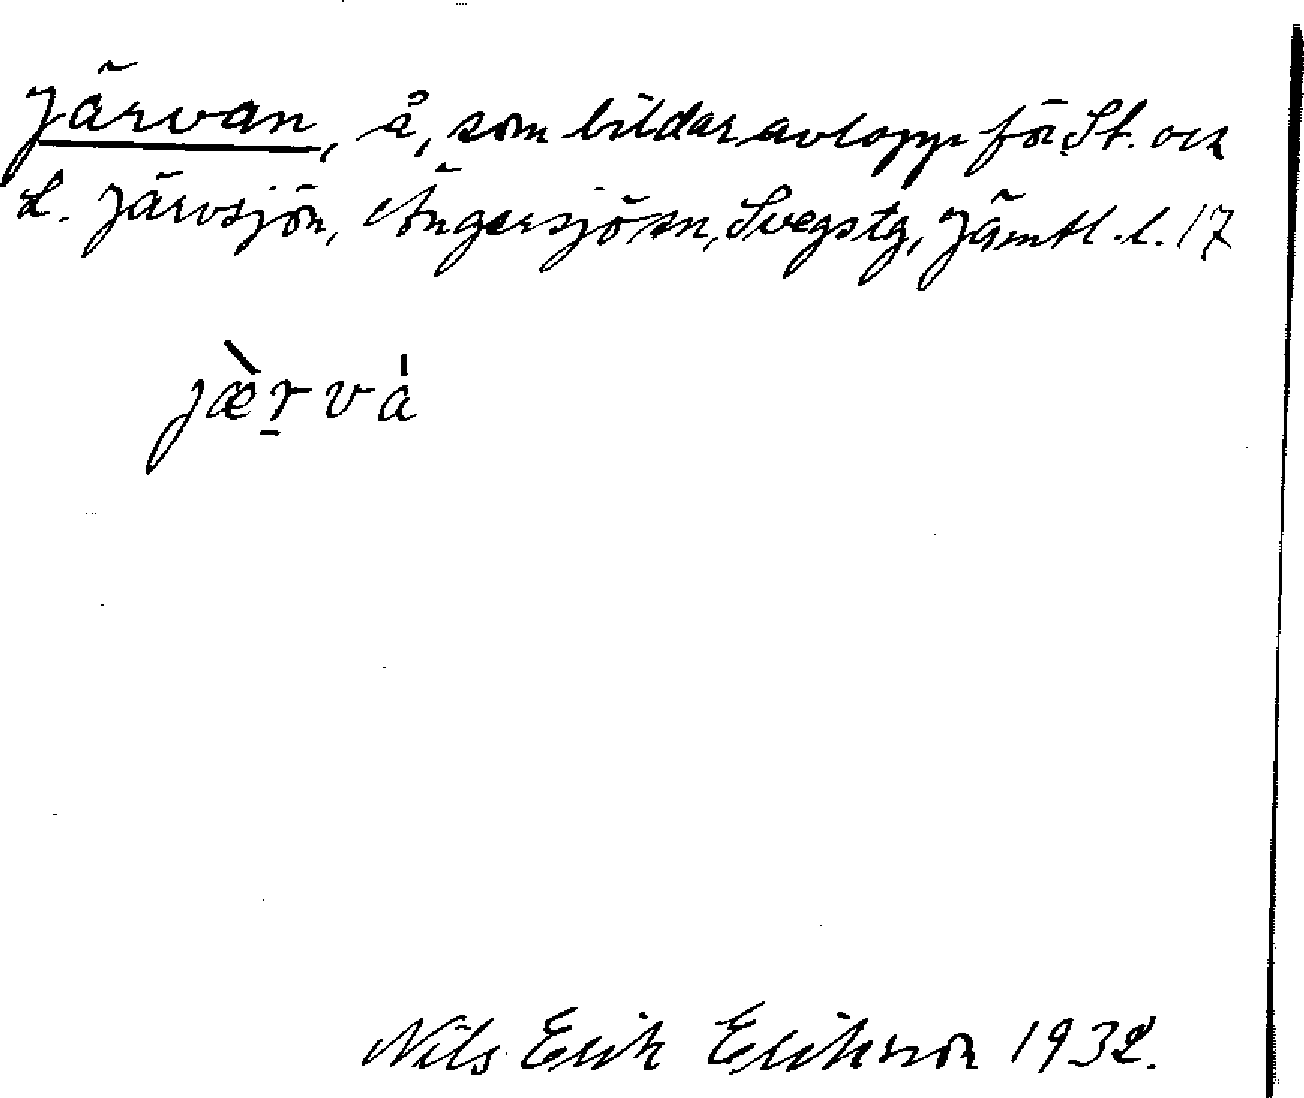 Järvan, å, som bildar avlopp för St. och
L. Järvsjön, Ängersjö sn, Svegs tg, Jämtl. l. 17
jæ̀r̠vȧ
Nils Erik Erikson 1932.